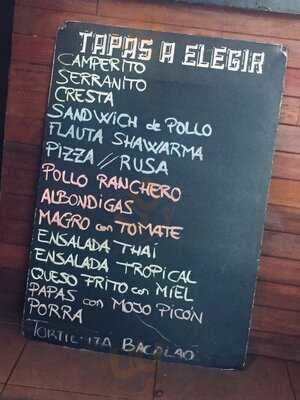 TAPAS A ELEGIR
CAMPERITO
SERRANITO
CRESTA
SANDWICH de POLLO
FLAUTA SHAWARMA
PIZZA // RUSA
POLLO RANCHERO
ALBONDIGAS
MAGRO con TOMATE
ENSALADA THAI
ENSALADA TROPICAL
QUESO FRITO con MIEL
PAPAS con MOJO PICÓN
PORRA
TORTILLITA BACALAO